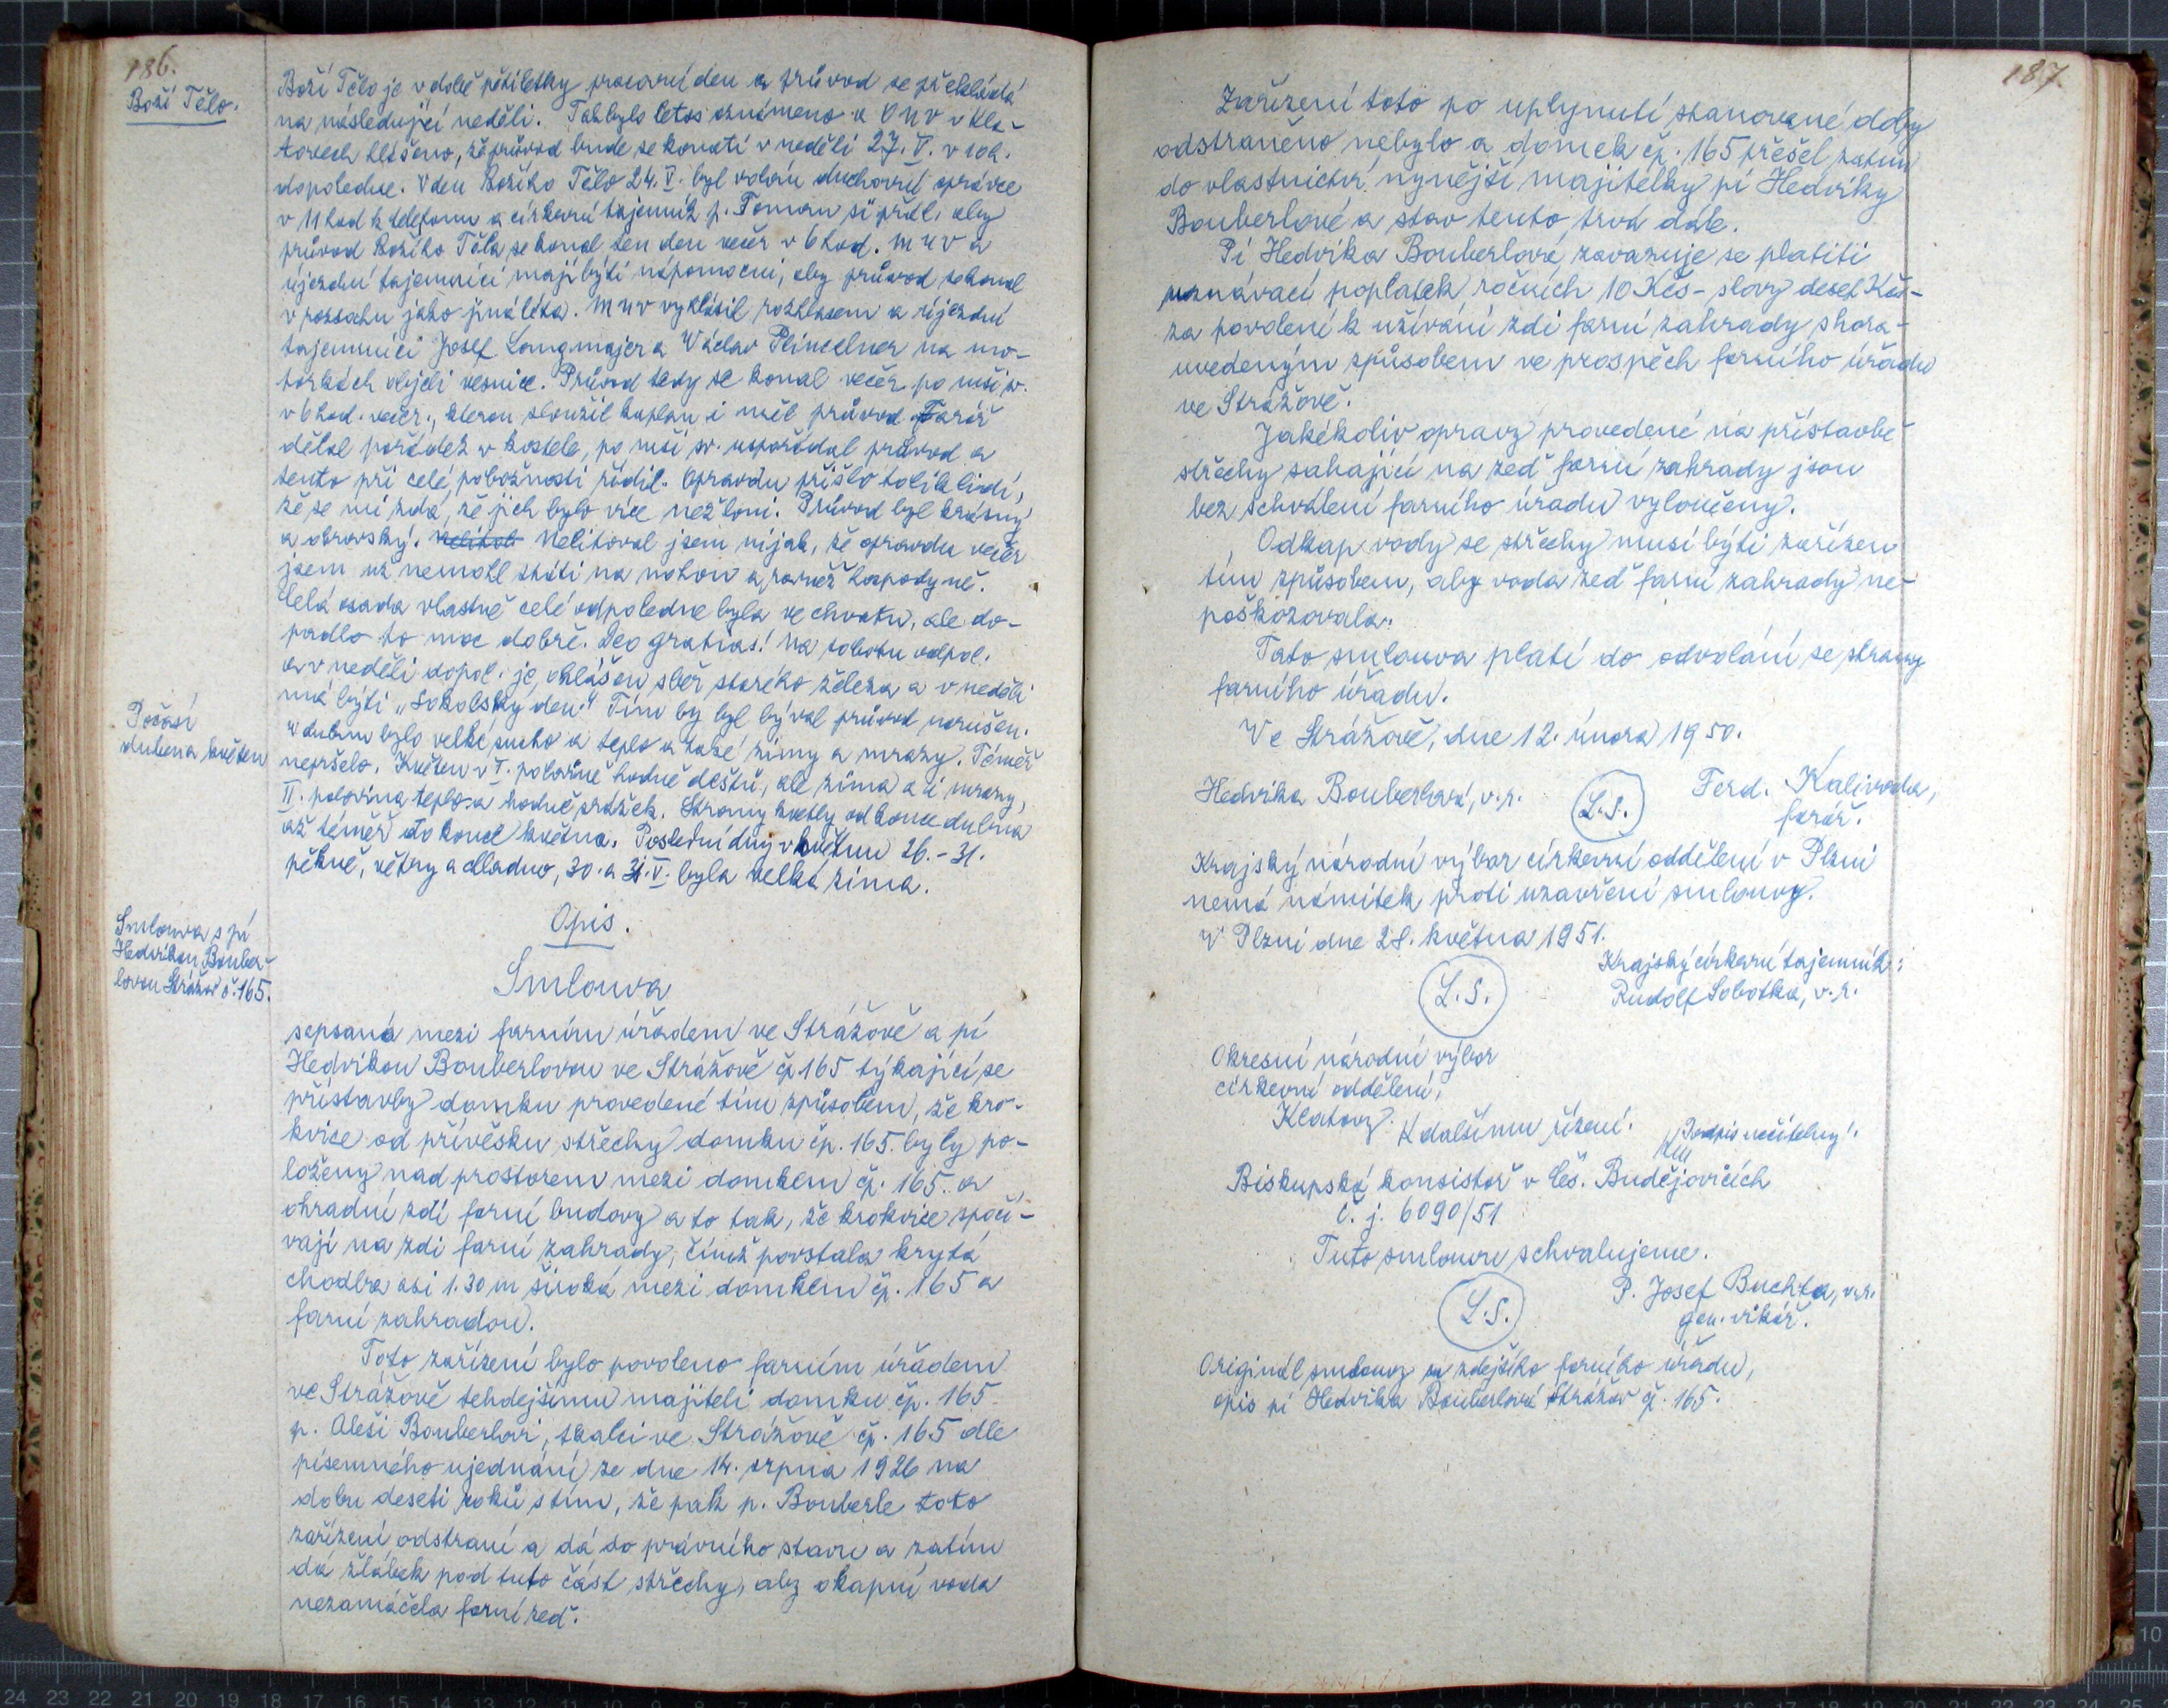 186.
Boží Tělo.
Boží Tělo je v době pětiletky pracovní den a průvod se překládá
na následující neděli. Tak bylo letos oznámeno a ONV v Kla-
tovech hlášeno, že průvod bude se konati v neděli 27. V. v 10h.
dopoledne. V den Božího Těla 24. V. byl volán duchovní správce
v 11 hod k telefonu a církevní tajemník p. Toman si přál, aby
průvod Božího Těla se konal ten den večer v 6 hod. MNV a
újezdní tajemníci mají býti nápomocni, aby průvod se konal
v rozsahu jako jiná léta. MNV vyhlásil rozhlasem a újezdní
tajemníci Josef Langmajer a Václav Plincelner na mo-
torkách objeli vesnice. Průvod tedy se konal večer po mši sv.
v 6 hod. večer, kterou sloužil kaplan i měl průvod. Farář
dělal pořádek v kostele, po mši sv. uspořádal průvod a
tento při celé pobožnosti řídil. Opravdu přišlo tolik lidí,
že se mi zdá, že jich bylo více než loni. Průvod byl krásný
a obrovský. Nelitoval jsem nijak, že opravdu večer
jsem už nemohl státi na nohou a rovněž hospodyně.
Celá osada vlastně celé odpoledne byla ve chvatu, ale do-
padlo to moc dobře. Deo gratias! Na sobotu odpol.
a v neděli dopol. je ohlášen sběr starého železa a v neděli
má býti „Sokolský den." Tím by byl býval průvod narušen.
Počasí
dubena květen
V dubnu bylo velké sucho a teplo a také zimy a mrazy. Téměř
nepršelo. Květen v I. polovině hodně deštů, ale zima a i mrazy,
II. polovina teplo a hodně srážek. Stromy kvetly od konce dubna
až téměř do konce května. Poslední dny v květnu 26.-31.
pěkně, větry a chladno, 30. a 31. V. byla velká zima.
Opis.
Smlouva s pí
Hedvikou Bouber-
lovou Strážov č. 165.
Smlouva
sepsaná mezi farním úřadem ve Strážově a pí
Hedvikou Bouberlovou ve Strážově čp 165 týkající se
přístavby domku provedené tím způsobem, že kro-
kvice od přívěsku střechy domku čp. 165. byly po-
loženy nad prostorem mezi domkem čp. 165. a
ohradní zdí farní budovy a to tak, že krokvice spočí-
vají na zdi farní zahrady, čímž povstala krytá
chodba asi 1.30 m široká mezi domkem čp. 165 a
farní zahradou.
Toto zařízení bylo povoleno farním úřadem
ve Strážově tehdejšímu majiteli domku čp. 165
p. Aleši Bouberlovi, tkalci ve Strážově čp. 165 dle
písemného ujednání ze dne 14. srpna 1926 na
dobu deseti roků s tím, že pak p. Bouberle toto
zařízení odstraní a dá do právního stavu a zatím
dá žlábek pod tuto část střechy, aby okapní voda
nezamáčela farní zeď.
187.
Zařízení toto po uplynutí stanovené doby
odstraněno nebylo a domek čp. 165 přešel zatím
do vlastnictví nynější majitelky pí Hedviky
Bouberlové a stav tento trvá dále.
Pí Hedvika Bouberlová zavazuje se platiti
uznávací poplatek ročních 10 Kčs - slovy deset Kčs -
za povolení k užívání zdi farní zahrady shora-
uvedeným způsobem ve prospěch farního úřadu
ve Strážově.
Jakékoliv opravy provedené na přístavbě
střechy sahající na zeď farní zahrady jsou
bez schválení farního úřadu vyloučeny.
Odkap vody se střechy musí býti zařízen
tím způsobem, aby voda zeď farní zahrady ne-
poškozovala.
Tato smlouva platí do odvolání se strany
farního úřadu.
Ve Strážově, dne 12. února 1950.
Hedvika Bouberlová, v.r. L.S. Ferd. Kalivoda,
farář.
Krajský národní výbor církevní oddělení v Plzni
nemá námitek proti uzavření smlouvy.
V Plzni dne 28. května 1951.
Krajský církevní tajemník:
L.S. Rudolf Sobotka, v.r.
Okresní národní výbor
církevní oddělení,
Klatovy. K dalšímu řízení. Podpis nečitelný.
Biskupská konsistoř v Čes. Budějovicích
č. j. 6090/51
Tuto smlouvu schvalujeme.
L.S. P. Josef Buchta, v.r.
gen. vikář.
Originál smlouvy u zdejšího farního úřadu,
opis pí Hedvika Bouberlová Strážov čp. 165.